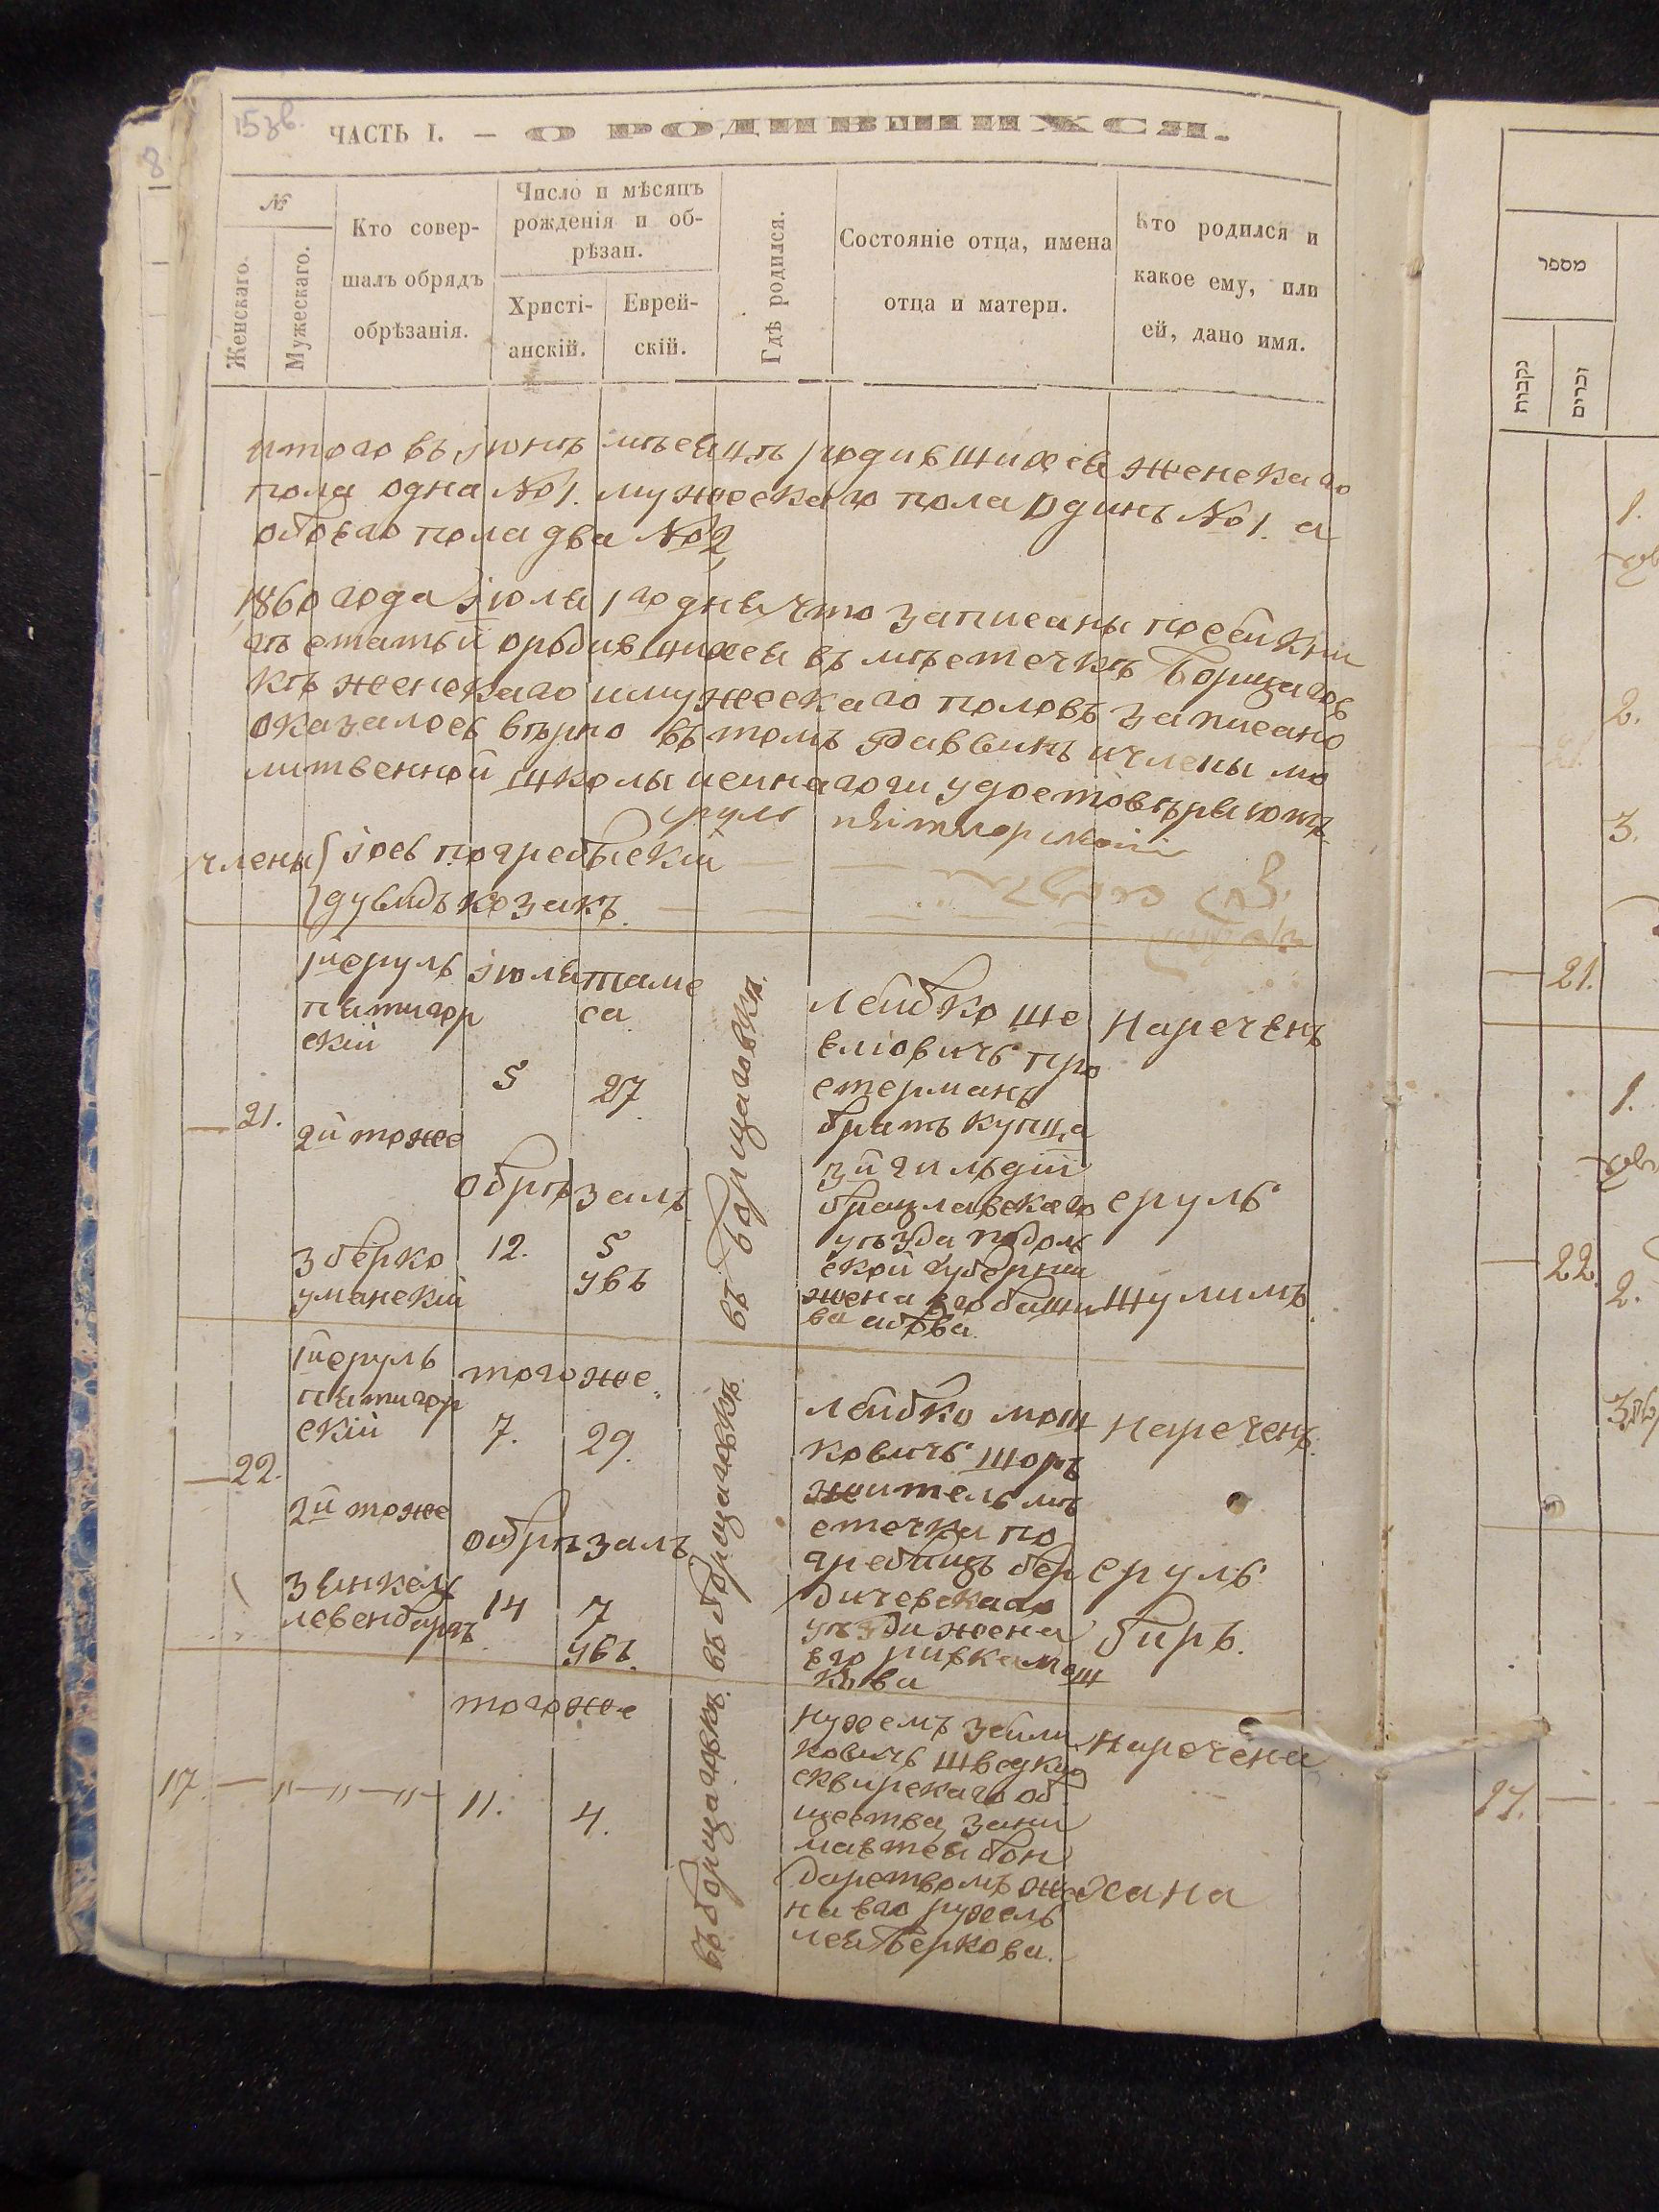 153в.
8
ЧАСТЬ I. — О РОДИВШИХСЯ.
№
Женскаго.
Мужескаго.
Кто совер-
шалъ обрядъ
обрѣзанія.
Число и мѣсяцъ
рожденія и об-
рѣзан.
Христі-
анскій.
Еврей-
скій.
Гдѣ родился.
Состояніе отца, имена
отца и матери.
Кто родился и
какое ему, или
ей, дано имя.
итого въ іюнѣ мѣсяцѣ родившихся женскаго
пола одна №1. мужескаго пола одинъ №1. а
обоего пола два №2
1860 года Іюля 1го дня что записаны по сей кни
гѣ статьи о родившихся въ мѣстечкѣ Борщагов
кѣ женскаго и мужескаго половъ записано
оказалось вѣрно въ томъ Раввинъ и члены мо
литвенной школы синагоги удостовѣряютъ
сруль пятигорскій
члены іось погребыскій
дувидъ козакъ
21.
1й сруль
пятигор
скій
2й тоже
3 берко
уманскій
Іюля
5
обрѣзалъ
12.
тамс
са
27
5
увъ
въ борщаговкѣ.
лейбко ше
вліовичъ про
стерманъ
братъ купца
3й гильдіи
брацлавскаго
уѣзда подоль
ской губерніи
жена его
Нареченъ
сруль
шулимъ.
22.
1й сруль
пятигор
скій
2й тоже
3 янкель
левенбергъ
тогоже
7.
29.
обрѣзалъ
14
7
увъ.
въ борщаговкѣ.
лейбко мош
ковичъ шоръ
житель мѣ
стечка по
гребищъ бер
дичевскаго
уѣзда жена
его ривка мош
кова
Нареченъ
сруль
биръ.
17.
тогоже
11.
4.
въ борщаговкѣ.
нухемъ зейли
ковичъ
сквирскаго об
щества зани
мается бон
дарствомъ же
на его рухель
лея беркова.
наречена
хана
מספר
נקבות
זכרים
1.
2.
3.
21.
1.
22.
2.
17.